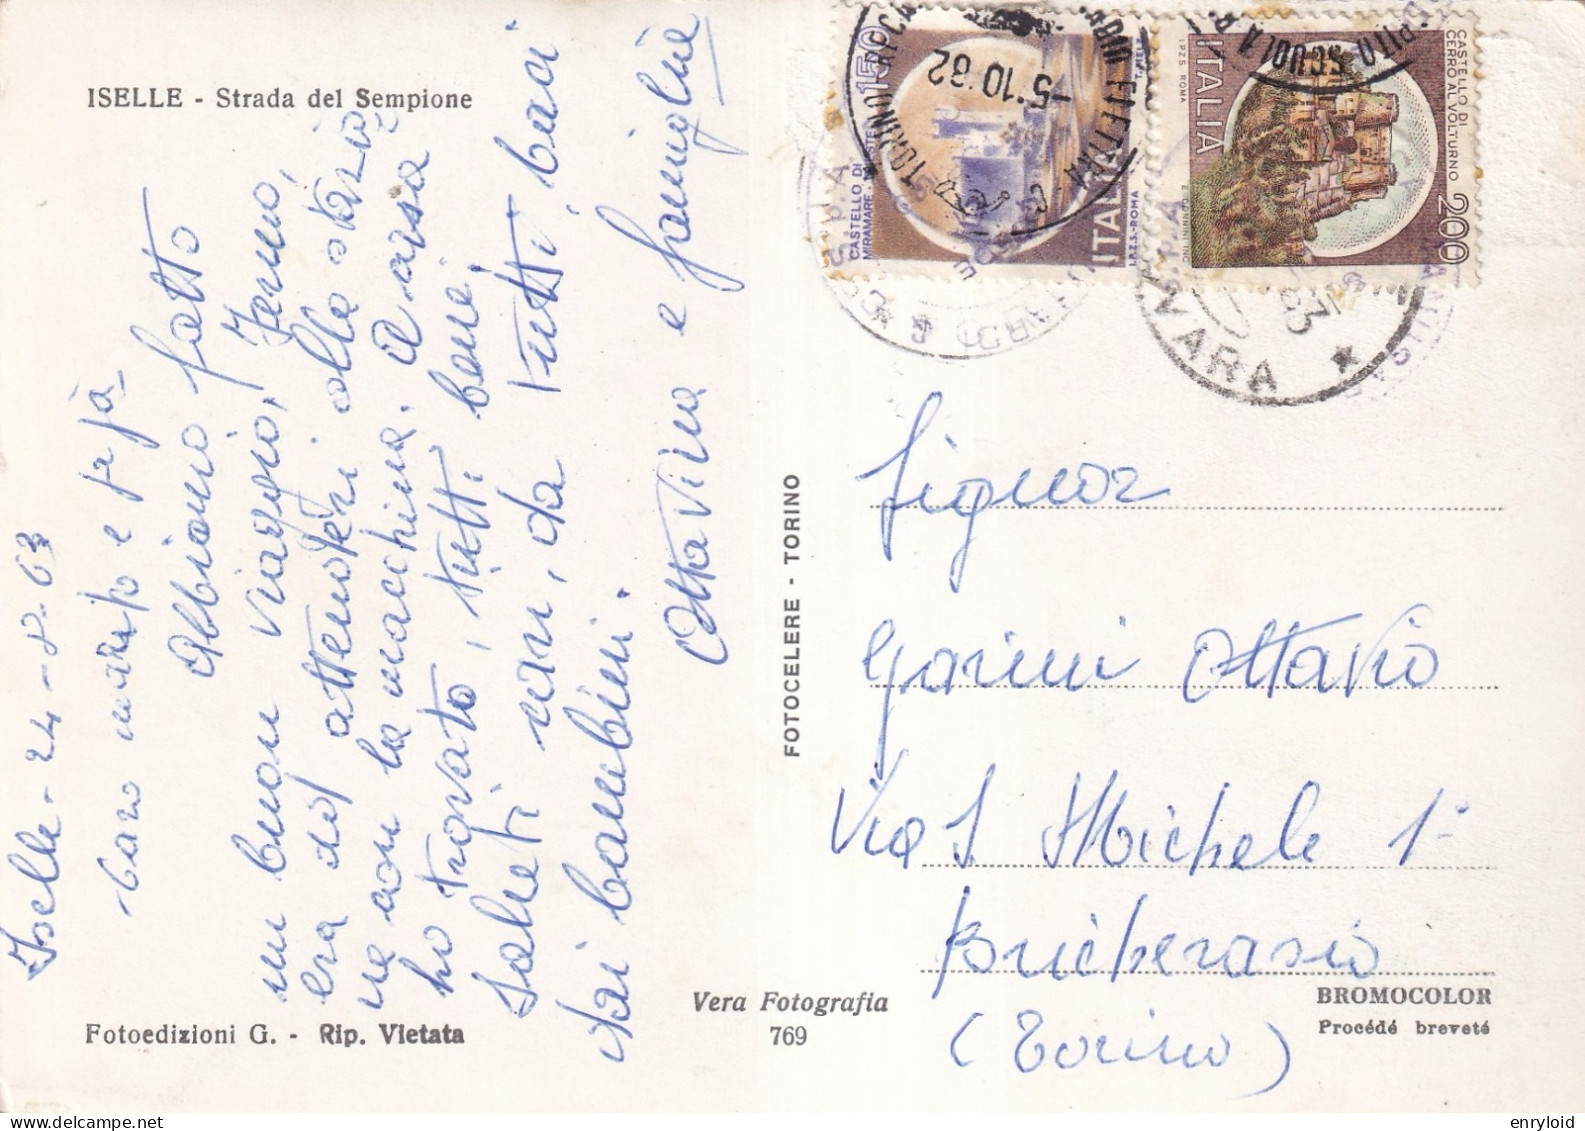 ISELLE - Strada del Sempione
Iselle - 24-8-63
Caro marito e papà
Abbiamo fatto
un buon viaggio, Jermo,
era ad attenderci alla stazio
ne con la macchina. A casa
ho trovato, tutti bene,
Saluti cari, da tutti, baci
dai bambini.
Ottavina e famiglia
Fotoedizioni G. - Rip. Vietata
Vera Fotografia
769
FOTOCELERE - TORINO
BROMOCOLOR
Procédé breveté
Signor
Garini Ottavio
Via S. Michele 1°
Bricherasio
(Torino)
150
CASTELLO DI
MIRAMARE
ITALIA
I.P.Z.S. - ROMA
TORINO
5.10.82
CASTELLO DI
CERRO AL VOLTURNO
200
ITALIA
I.P.Z.S. ROMA
SCUOLA
S.p.A.
enryloid
delcampe.net